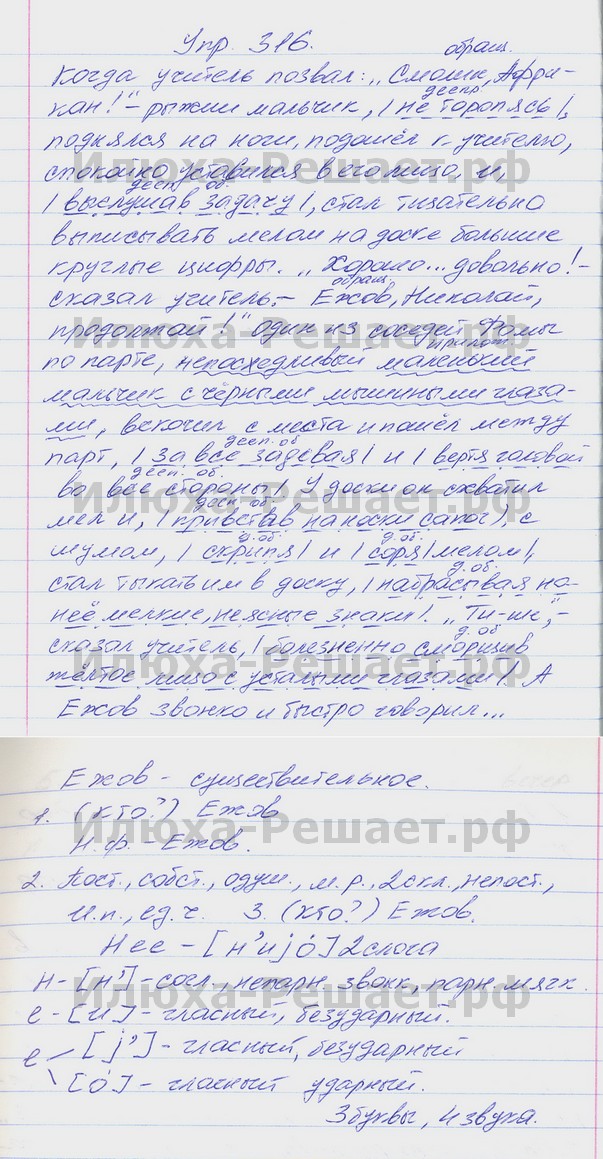 Упр. 316.
обращ.
Когда учитель позвал: „Смолин, Афри-
деепр.
кан!" – рыжий мальчик, | не торопясь |,
поднялся на ноги, подошёл к учителю,
спокойно уставился в его лицо, и,
дееп. об.
| выслушав задачу |, стал тщательно
выписывать мелом на доске большие
круглые цифры. „Хорошо... довольно! –
обращ.
сказал учитель. – Ежов, Николай,
продолжай!" один из соседей Фомы
прилож.
по парте, непоседливый маленький
мальчик с чёрными мышиными глаза-
ми, вскочил с места и пошёл между
дееп. об.
парт, | за всё задевая | и | вертя головой
дееп. об.
во все стороны |. У доски он схватил
дееп. об.
мел и, | привстав на носки сапог |, с
д. об. д. об.
шумом, | скрипя | и | соря | мелом |,
д. об.
стал тыкать им в доску, | набрасывая на
неё мелкие, неясные знаки |. „Ти-ше", –
д. об
сказал учитель, | болезненно сморщив
жёлтое лицо с усталыми глазами |. А
Ежов звонко и быстро говорил...
Илюха-Решает.рф
Илюха-Решает.рф
Илюха-Решает.рф
Илюха-Решает.рф
Ежов – существительное.
1. (кто?) Ежов
Н.ф. – Ежов.
2. Пост., собст., одуш., м.р., 2 скл., непост.,
И.п., ед.ч. 3. (кто?) Ежов.
Нее – [н'иjо́] 2 слога
н – [н'] – согл., непарн. звонк., парн. мягк.
е – [и] – гласный, безударный.
е [j'] – гласный, безударный
[о́] – гласный ударный.
3 буквы, 4 звука.
Илюха-Решает.рф
Илюха-Решает.рф
Илюха-Решает.рф